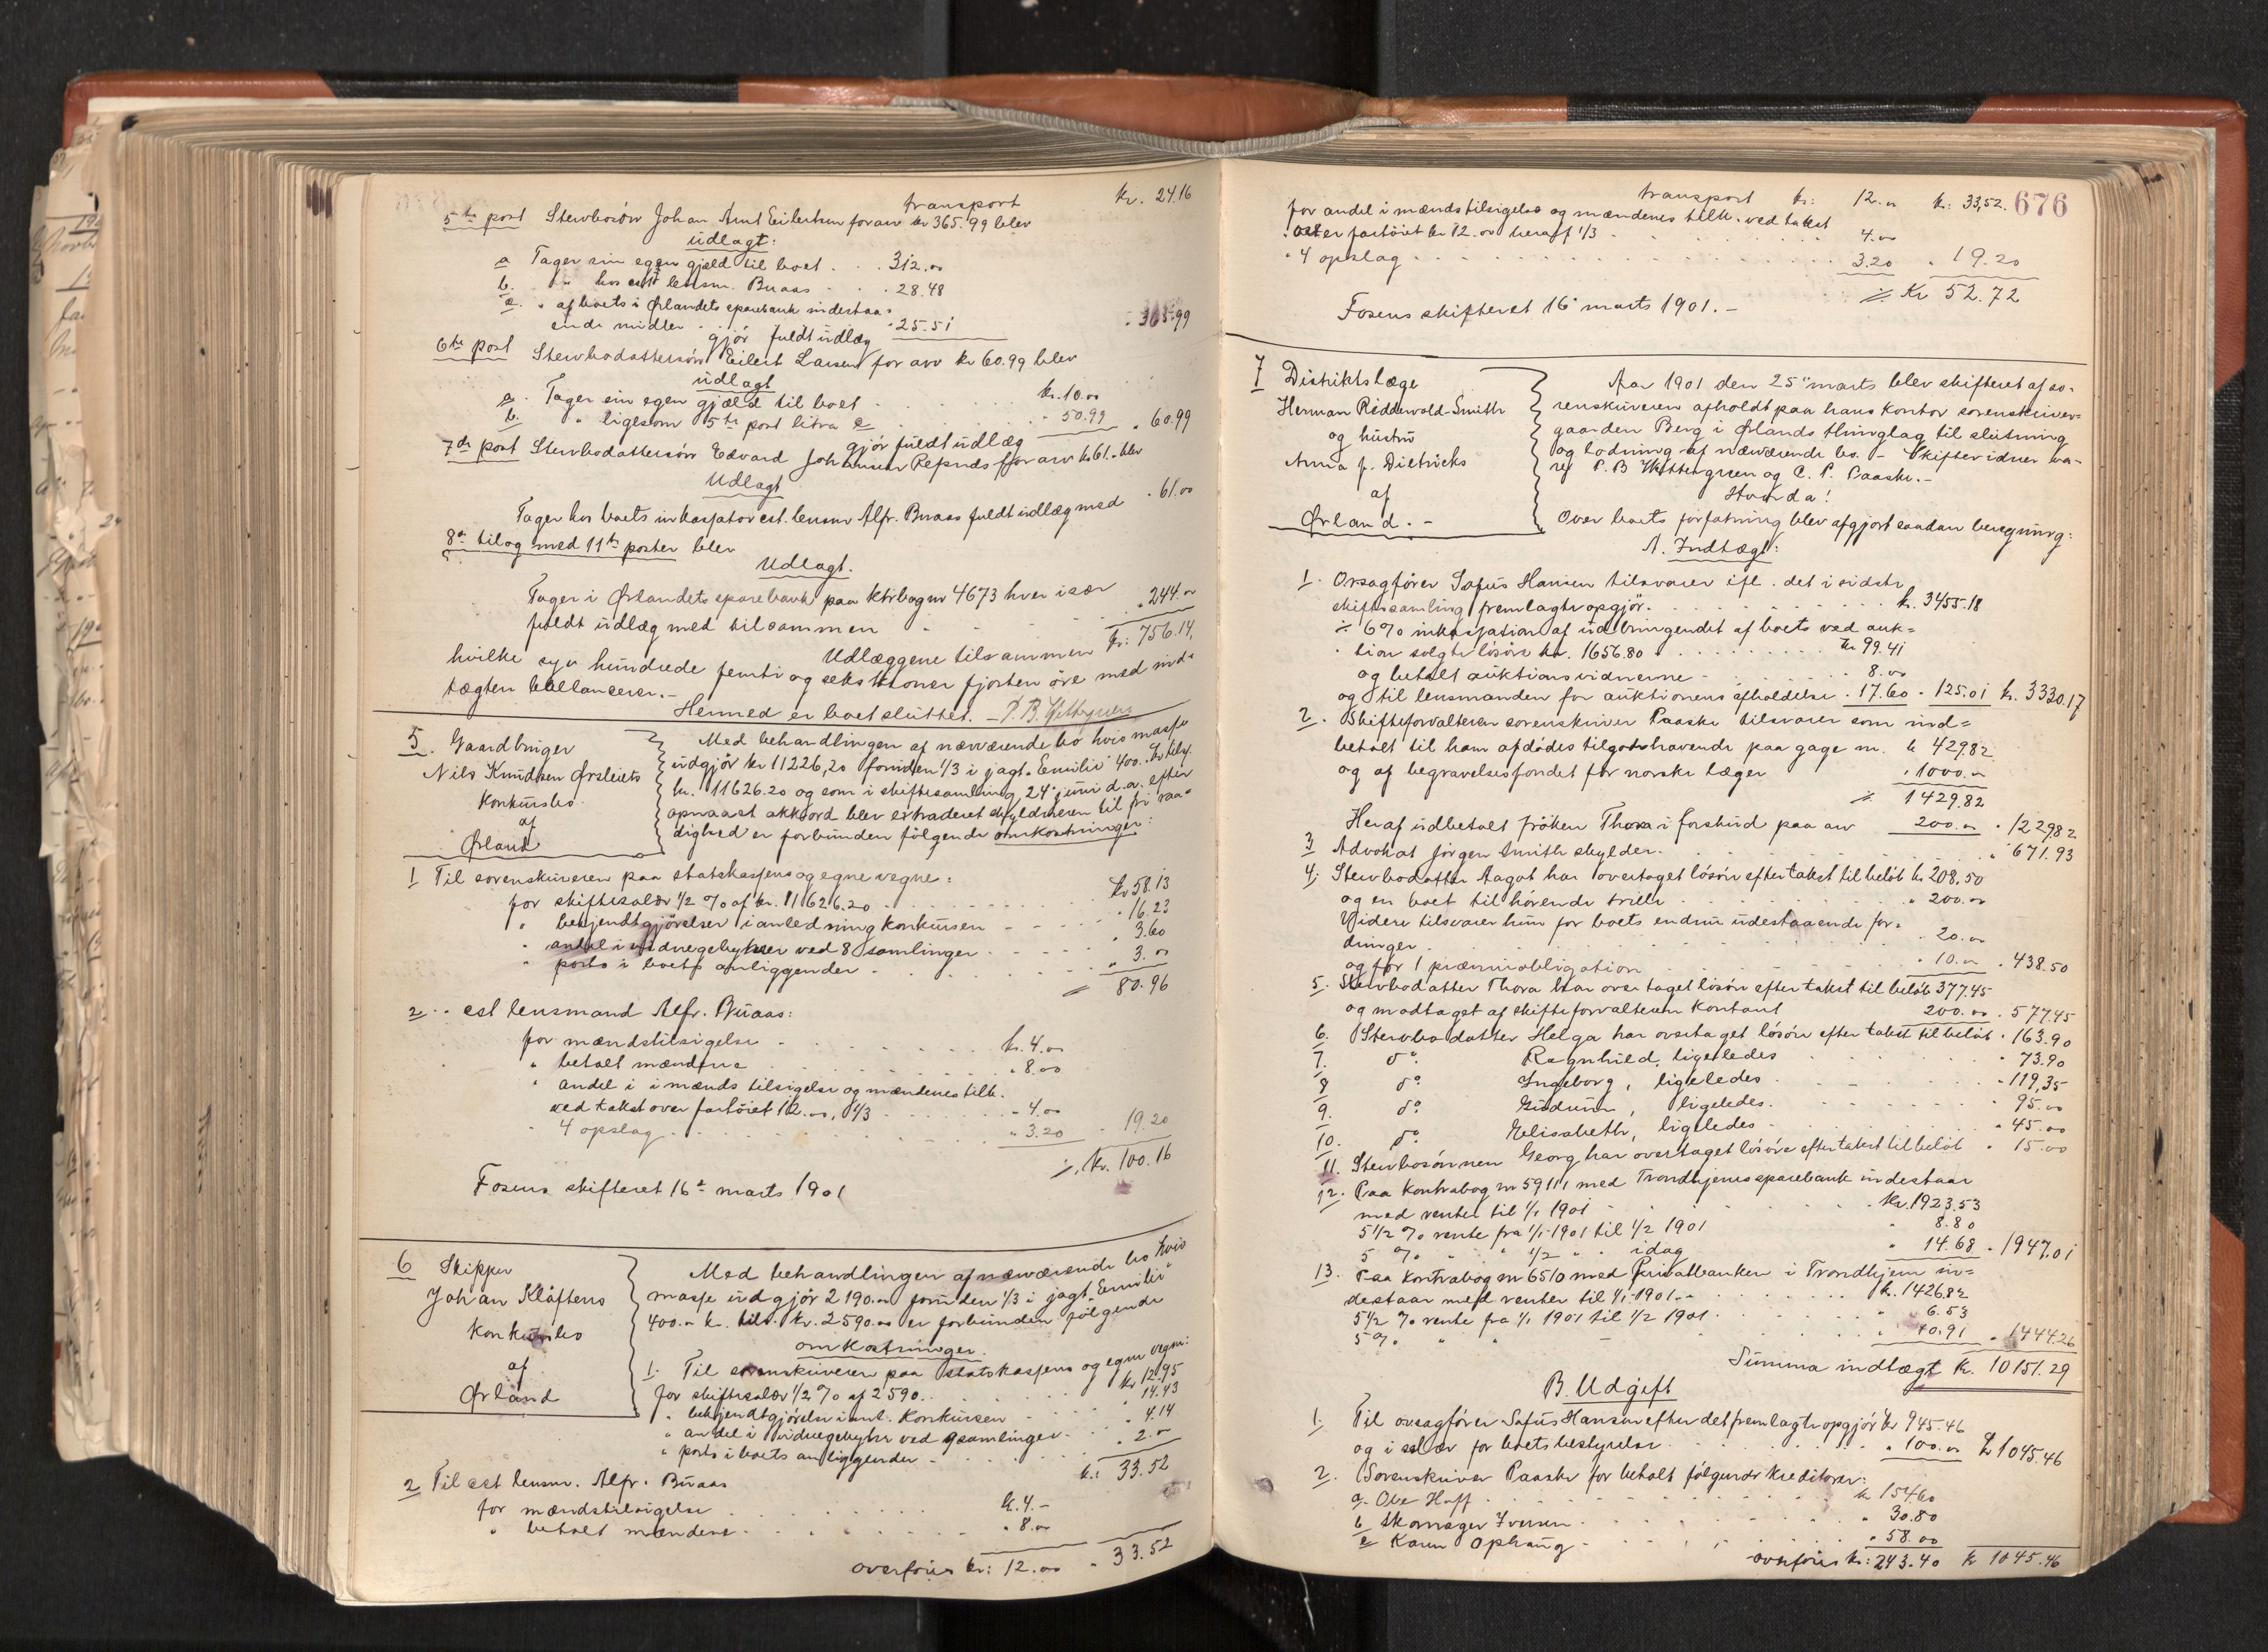 transport kr. 24.16
5te post Stervbosön Johan Arnt Eilertsen for arv kr 365.99 blev
udlagt:
a Tager sin egen gjæld til boet . . . 312.00
b. " hos cst lensm. Buaas . . 28.48
c. " af boets i Ørlandets sparebank indestaa=
ende midler . . 25.51
gjør fuldt udlæg " 365.99
6te post Stervbodattersön Eilert Larsen for arv kr 60.99 blev
udlagt
a. Tager sin egen gjæld til boet . . . . kr. 10.00
b. " ligesom 5te post litra c " 50.99
gjør fuldt udlæg " 60.99
7de post Stervbodattersön Edvard Johansen for arv kr 61.- blev
Udlagt
Tager hos boets inkassator cst. lensm Alfr. Buaas fuldt udlæg med . 61.00
8de til og med 11te poster blev
Udlagt.
Tager i Ørlandets sparebank paa ktrbog nr 4673 hver især
fuldt udlæg med tilsammen " 244.00
Udlæggene tilsammen kr: 756.14,
hvilke syv hundrede femti og seks kroner fjorten öre med ind=
tægten ballancerer.-
Hermed er boet sluttet. - P. B. Wettergreen
5. Gaardbruger
Nils Knudsen Ørsleiets
Konkursbo
af
Ørland
Med behandlingen af nærværende bo hvis masse
udgjör kr 11226,20 foruden 1/3 i jagt. "Emilie" 400.- kr tils.
kr. 11626.20 og som i skiftesamling 24de juni d.a. efter
opnaaet akkord blev extraderet skyldneren til fri raa=
dighed er forbunden fölgende omkostninger:
1 Til sorenskriveren paa statskassens og egne vegne:
for skiftesalær 1/2 % af kr. 11626.20 . . . kr 58.13
" bekjendtgjörelser i anledning konkursen - - - " 16.23
" andel i vidnegebyhrer ved 8 samlinger - - - " 3.60
" porto i boets anliggender - . . . . " 3.00
= 80.96
2 .. cst lensmand Alfr. Buaas:
for mændstilsigelse . . . . kr. 4.00
" betalt mændene . . . . " 8.00
" andel i mænds tilsigelse og mændenes tilk.
ved takst over fartöiet 12.00, 1/3 . . . - 4.00
" 4 opslag . . . . " 3.20 - 19.20
÷. kr. 100.16
Fosens skifteret 16de marts 1901
6 Skipper
Johan Klåftens
Konkursbo
af
Ørland
Med behandlingen af nærværende bo hvis
masse udgjör 2190.00 foruden 1/3 i jagt "Emilie"
400.00 kr. tils. kr. 2590.00 er forbunden fölgende
omkostninger.
1. Til sorenskriveren paa statskassens og egne vegne:
for skiftesalær 1/2 % af 2590. . . kr 12.95
" bekjendtgjörelse i anl. Konkursen - . . 14.43
" andel i vidnegebyhr ved 9 samlinger - . " 4.14
" porto i boets anliggender - . . " 2.00
kr: 33.52
2 Til cst lensm. Alfr. Buaas
for mændstilsigelse . . . . kr. 4.-
" betalt mændene . . . . " 8.00
overföres kr: 12.00 - 33.52
transport kr: 12.00 kr: 33,52. 676
for andel i mændstilsigelse og mændenes tilk. ved takst
over fartöiet kr 12.00 heraf 1/3 . . . 4.00
" 4 opslag . . . . 3.20 " 19.20
÷ Kr 52.72
Fosens skifteret 16de marts 1901.-
7 Distriktslæge
Herman Riddervold-Smith
og hustru
Anna f. Dietrichs
af
Ørland.-
Aar 1901 den 25de marts blev skifteret af so=
renskriveren afholdt paa hans kontor sorenskriver=
gaarden Berg i Ørlands thinglag til slutning
og lodning af nærværende bo. - Skiftevidner va=
re P. B Wettergreen og C. P. Paaske.-
Hvorda!
Over boets forfatning blev afgjort saadan beregning:
A. Indtægt:
1. Orsagförer Sofus Hansen tilsvarer ifl. det i sidste
skiftesamling fremlagte opgjör. . . . . kr. 3455.18
÷ 6 % inkassation af udbringendet af boets ved auk=
tion solgte lösöre kr. 1656.80 . . . . kr 99.41
og betalt auktionsvidnerne . . . 8.00
og til lensmanden for auktionens afholdelse . 17.60 - 125.01 kr. 3330.17
2. Skifteforvalteren sorenskriver Paaske tilsvarer som ind=
betalt til ham afdödes tilgodehavende paa gage m. kr 429.82
og af begravelsesfondet for norske læger " 1000.00
÷ 1429.82
Heraf udbetalt fröken Thora i forskud paa arv 200.00 " 1229.82
3 Advokat Jörgen Smith skylder . . . . " 671.93
4. Stervbodatter Aagot har overtaget lösöre efter takst til belöb kr 208.50
og en boet tilhörende trille . . . " 200.00
Videre tilsvarer hun for boets endnu udestaaende for=
dringer . . . . . 20.00
og for 1 præmieobligation . . . " 10.00 . 438.50
5. Stervbodatter Thora har overtaget lösöre efter takst til belöb 377.45
og modtaget af skifteforvalteren kontant 200.00 . 577.45
6. Stervbodatter Helga har overtaget lösöre efter takst til belöb . 163.90
7. do. Ragnhild, ligeledes . . . " 73.90
8 do. Ingeborg, ligeledes . . . - 119,35
9. do. Gudrun, ligeledes. . . . " 95.00
10. do. Elisabeth, ligeledes . . . " 45.00
11. Stervbosönnen Georg har overtaget lösöre efter takst til belöb " 15.00
12. Paa kontrabog nr 59111 med Trondhjems sparebank indestaar
med renter til 1/1 1901 . . . . kr. 1923.53
5 1/2 % rente fra 1/1 1901 til 1/2 1901 " 8.80
5 % " " 1/2 " " idag " 14.68 . 1947.01
13. Paa kontrabog nr 6510 med Privatbanken i Trondhjem in=
destaar med renter til 1/1 1901.- . . . kr. 1426.82
5 1/2 % rente fra 1/1 1901 til 1/2 1901 . . " 6.53
5 % " " . . . . " 10.91 " 1444.26
Summa indtægt kr. 10151.29
B. Udgift
1. Til orsagförer Sofus Hansen efter det fremlagte opgjör kr 945.46
og i salær for boets bestyrelse . . . " 100.00 kr 1045.46
2. Sorenskriver Paaske for betalt fölgende kreditorer:
a. Ole Hoff . . . . kr 154.60
b Skomager Iversen . . . " 30.80
c Karen Ophaug . . . . " 58.00
overföres kr: 243.40 kr 1045.46